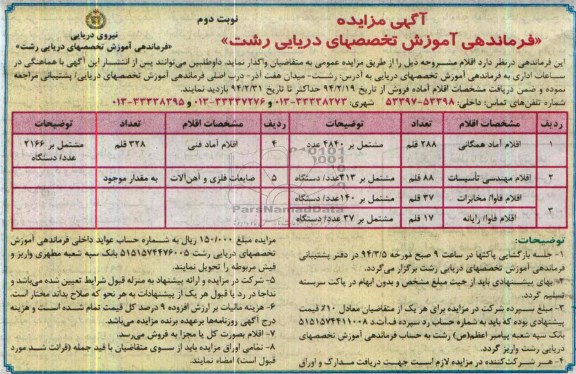 آگهی مزایده
نوبت دوم
«فرماندهی آموزش تخصصهای دریایی رشت»
نیروی دریایی
«فرماندهی آموزش تخصصهای دریایی رشت»
این فرماندهی درنظر دارد اقلام مشروحه ذیل را از طریق مزایده عمومی به متقاضیان واگذار نماید. داوطلبین می‌توانند پس از انتشار این آگهی با هماهنگی در
ساعات اداری به فرماندهی آموزش تخصصهای دریایی به آدرس: رشت- میدان هفت آذر- درب اصلی فرماندهی آموزش تخصصهای دریایی/ پشتیبانی مراجعه
نموده و ضمن دریافت مشخصات اقلام آماده فروش از تاریخ ۹۴/۲/۱۹ حداکثر تا تاریخ ۹۴/۲/۳۱ بازدید نمایند.
شماره تلفن‌های تماس: داخلی: ۵۳۳۹۸-۵۳۳۹۷ شهری: ۳۳۳۳۸۲۷۳-۰۱۳ و ۳۳۳۳۷۲۷۶-۰۱۳ و ۳۳۳۳۸۳۹۵-۰۱۳
ردیف مشخصات اقلام تعداد توضیحات ردیف مشخصات اقلام تعداد توضیحات
۱ اقلام آماد همگانی ۲۸۸ قلم مشتمل بر ۴۸۴۰ عدد ۴ اقلام آماد فنی ۳۲۸ قلم مشتمل بر ۲۱۶۶
عدد/ دستگاه
۲ اقلام مهندسی تأسیسات ۸۸ قلم مشتمل بر ۳۱۳عدد/ دستگاه ۵ ضایعات فلزی و آهن‌آلات به مقدار موجود
۳ اقلام فاوا/ مخابرات ۳۷ قلم مشتمل بر ۱۴۰عدد/ دستگاه
اقلام فاوا/ رایانه ۱۷ قلم مشتمل بر ۳۷ عدد/ دستگاه
ParsNamadData
توضیحات:
۱- جلسه بازگشایی پاکتها در ساعت ۹ صبح مورخه ۹۴/۳/۵ در دفتر پشتیبانی
فرماندهی آموزش تخصصهای دریایی رشت برگزار می‌گردد.
۲- بهای پیشنهادی باید از حیث مبلغ مشخص و بدون ابهام در پاکت سربسته
تسلیم گردد.
۳- مبلغ سپرده شرکت در مزایده برای هر یک از متقاضیان معادل ۱۰٪ قیمت
پیشنهادی بوده که باید به شماره حساب رد سپرده ف.آ.ت.د ۵۱۵۱۵۷۴۴۱۱۰۰۸
بانک سپه شعبه پیامبر اعظم(ص) رشت به حساب فرماندهی آموزش تخصصهای
دریایی رشت واریز گردد.
۴- هر شرکت‌کننده در مزایده لازم است جهت دریافت مدارک و اوراق
مزایده مبلغ ۱۵۰/۰۰۰ ریال به شماره حساب عواید داخلی فرماندهی آموزش
تخصصهای دریایی رشت ۵۱۵۱۵۷۴۴۷۶۰۰۵ بانک سپه شعبه مطهری واریز و
فیش مربوطه را تحویل نمایند.
۵- شرکت در مزایده و ارائه پیشنهاد به منزله قبول شرایط تعیین شده می‌باشد و
نداجا در رد یا قبول هر یک از پیشنهادات به هر نحو که صلاح بداند مختار است
۶- هزینه مالیات بر ارزش افزوده ۹ درصد کل قیمت تمام شده است و هزینه
درج آگهی روزنامه‌ها برعهده برنده مزایده می‌باشد.
۷- اقلام بصورت کل یا مجزا به فروش می‌رسد.
۸- تمامی اوراق مزایده باید از سوی متقاضیان با قید جمله (قرائت شد مورد
قبول است) امضاء نمایند.